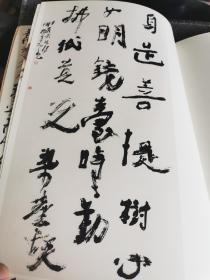 身是菩提樹心
如明鏡臺時々勤
拂拭莫使惹塵埃